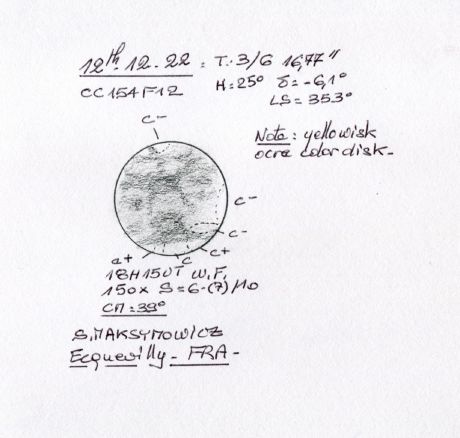 12th. 12. 22 : T. 3/6 16,77"
CC 154 F12 H = 25° δ = -6,1°
LS = 353°
Note : yellowisk
ocre color disk.
c-
c-
c-
a+ c c+
18H15UT W.F.
150x S = 6-(7)/10
CM = 39°
S.MAKSYMOWICZ
Ecquevilly - FRA -